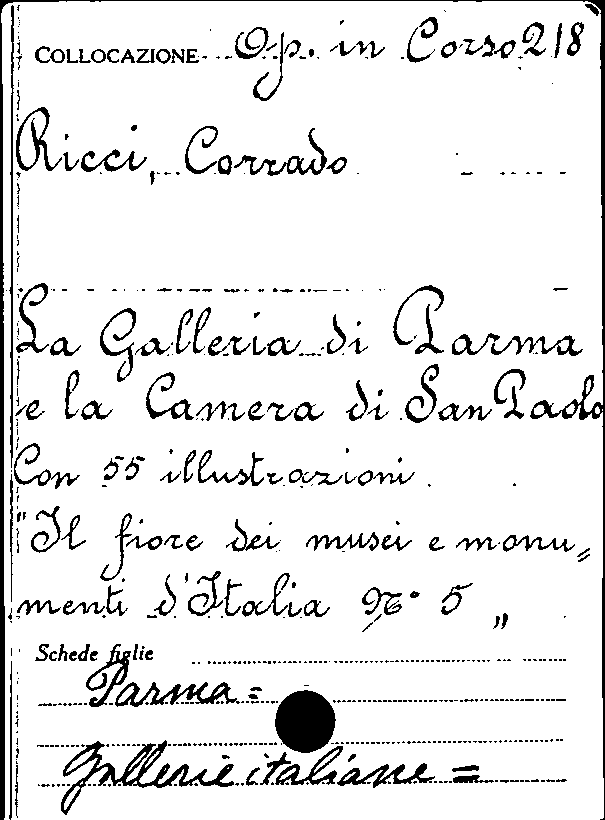 COLLOCAZIONE Op. in Corso 218
Ricci, Corrado
La Galleria di Parma
e la Camera di San Paolo
Con 55 illustrazioni.
"Il fiore dei musei e monu=
menti d'Italia N° 5 „
Schede figlie
Parma =
Gallerie italiane =